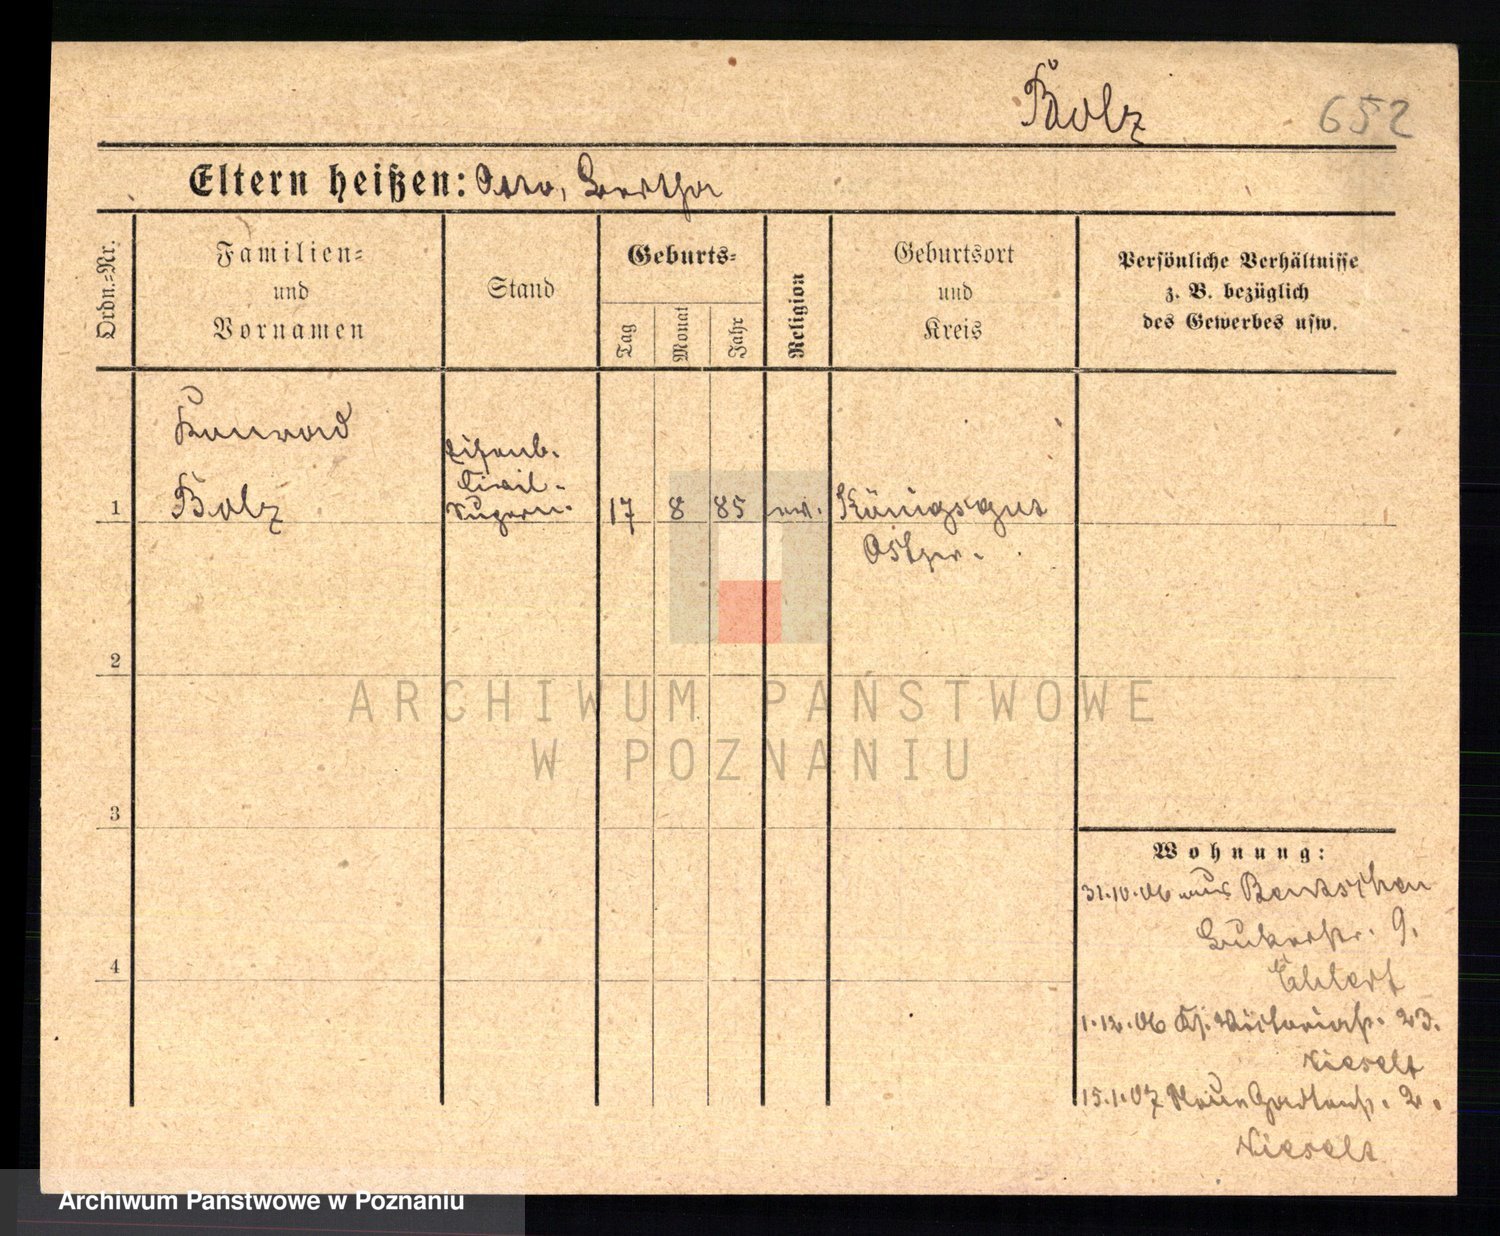 Bolz
652
Eltern heißen: Otto, Bertha
Ordn.-Nr.
Familien-
und
Vornamen
Stand
Geburts-
Tag
Monat
Jahr
Religion
Geburtsort
und
Kreis
Persönliche Verhältnisse
z. B. bezüglich
des Gewerbes usw.
Konrad
Eisenb.
Civil-
1 Bolz
17 8 85 ev. Königsgut
Ostpr.
2
ARCHIWUM PAŃSTWOWE
W POZNANIU
3
Wohnung:
31.10.06 aus Bentschen
9.
Ehlert
4
1.12.06 Victoriastr. 23.
Nieselt
15.1.07 Neue Gartenstr. 2.
Nieselt
Archiwum Państwowe w Poznaniu